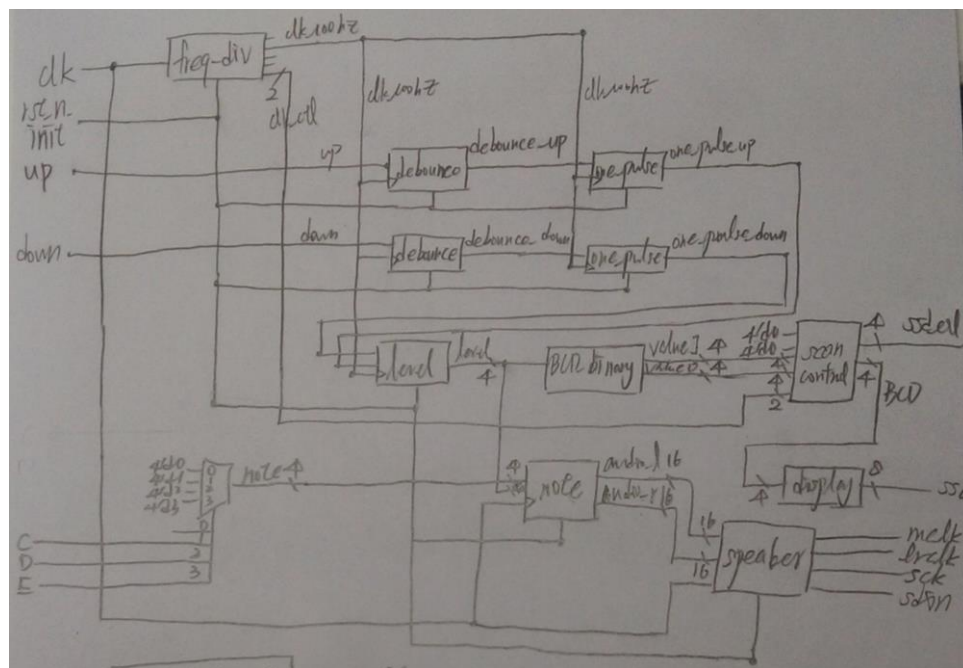 clk
freq-div
clk100hz
2
clk_ctl
clk100hz
clk100hz
rst_n
init
up
up
debounce
debounce_up
one_pulse
one_pulse_up
down
down
debounce
debounce_down
one_pulse
one_pulse_down
level
level
4
BCD binary
value1 4
value0 4
4'd0
4'd0
4
4
2
scan
control
4
4
BCD
4
display
8
4'd0
4'd1
4'd2
4'd3
0
1
2
3
note 4
0
1
2
3
C
D
E
4
note
audio_l 16
audio_r 16
16
16
speaker
mclk
lrclk
sck
sdin